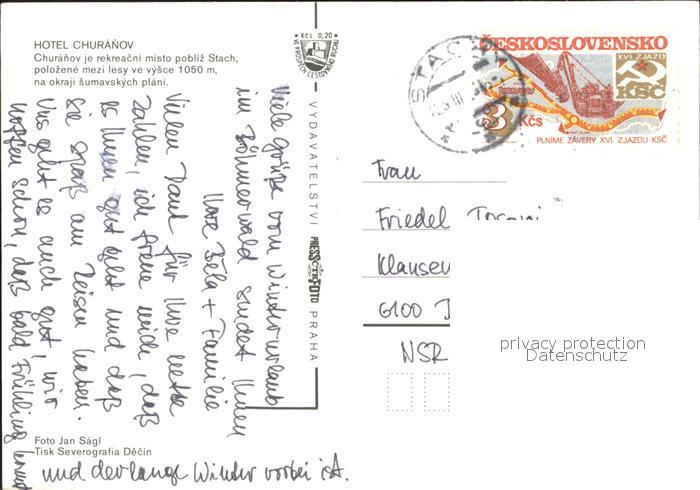 HOTEL CHURÁŇOV
Churáňov je rekreační místo poblíž Stach,
položené mezi lesy ve výšce 1050 m,
na okraji šumavských plání.
Viele Grüße vom Winterurlaub
im Böhmerwald sendet Ihnen
Ihre Béla + Familie
Vielen Dank für Ihre nette
Zahlen, ich freue mich, daß
es Ihnen gut geht und daß
Sie Spaß am Reisen haben.
Uns geht es auch gut, wir
hoffen schon, daß bald Frühling kommt
und der lange Winter vorbei ist.
Foto Jan Ságl
Tisk Severografia Děčín
Kčs 0,20
VYDAVATELSTVÍ PRESSFOTO PRAHA
STACHY
ČESKOSLOVENSKO
XVI. SJEZD
KSČ
3 Kčs
PLNÍME ZÁVĚRY XVI. SJEZDU KSČ
Frau
Friedel
Klausen
6100
NSR
privacy protection
Datenschutz